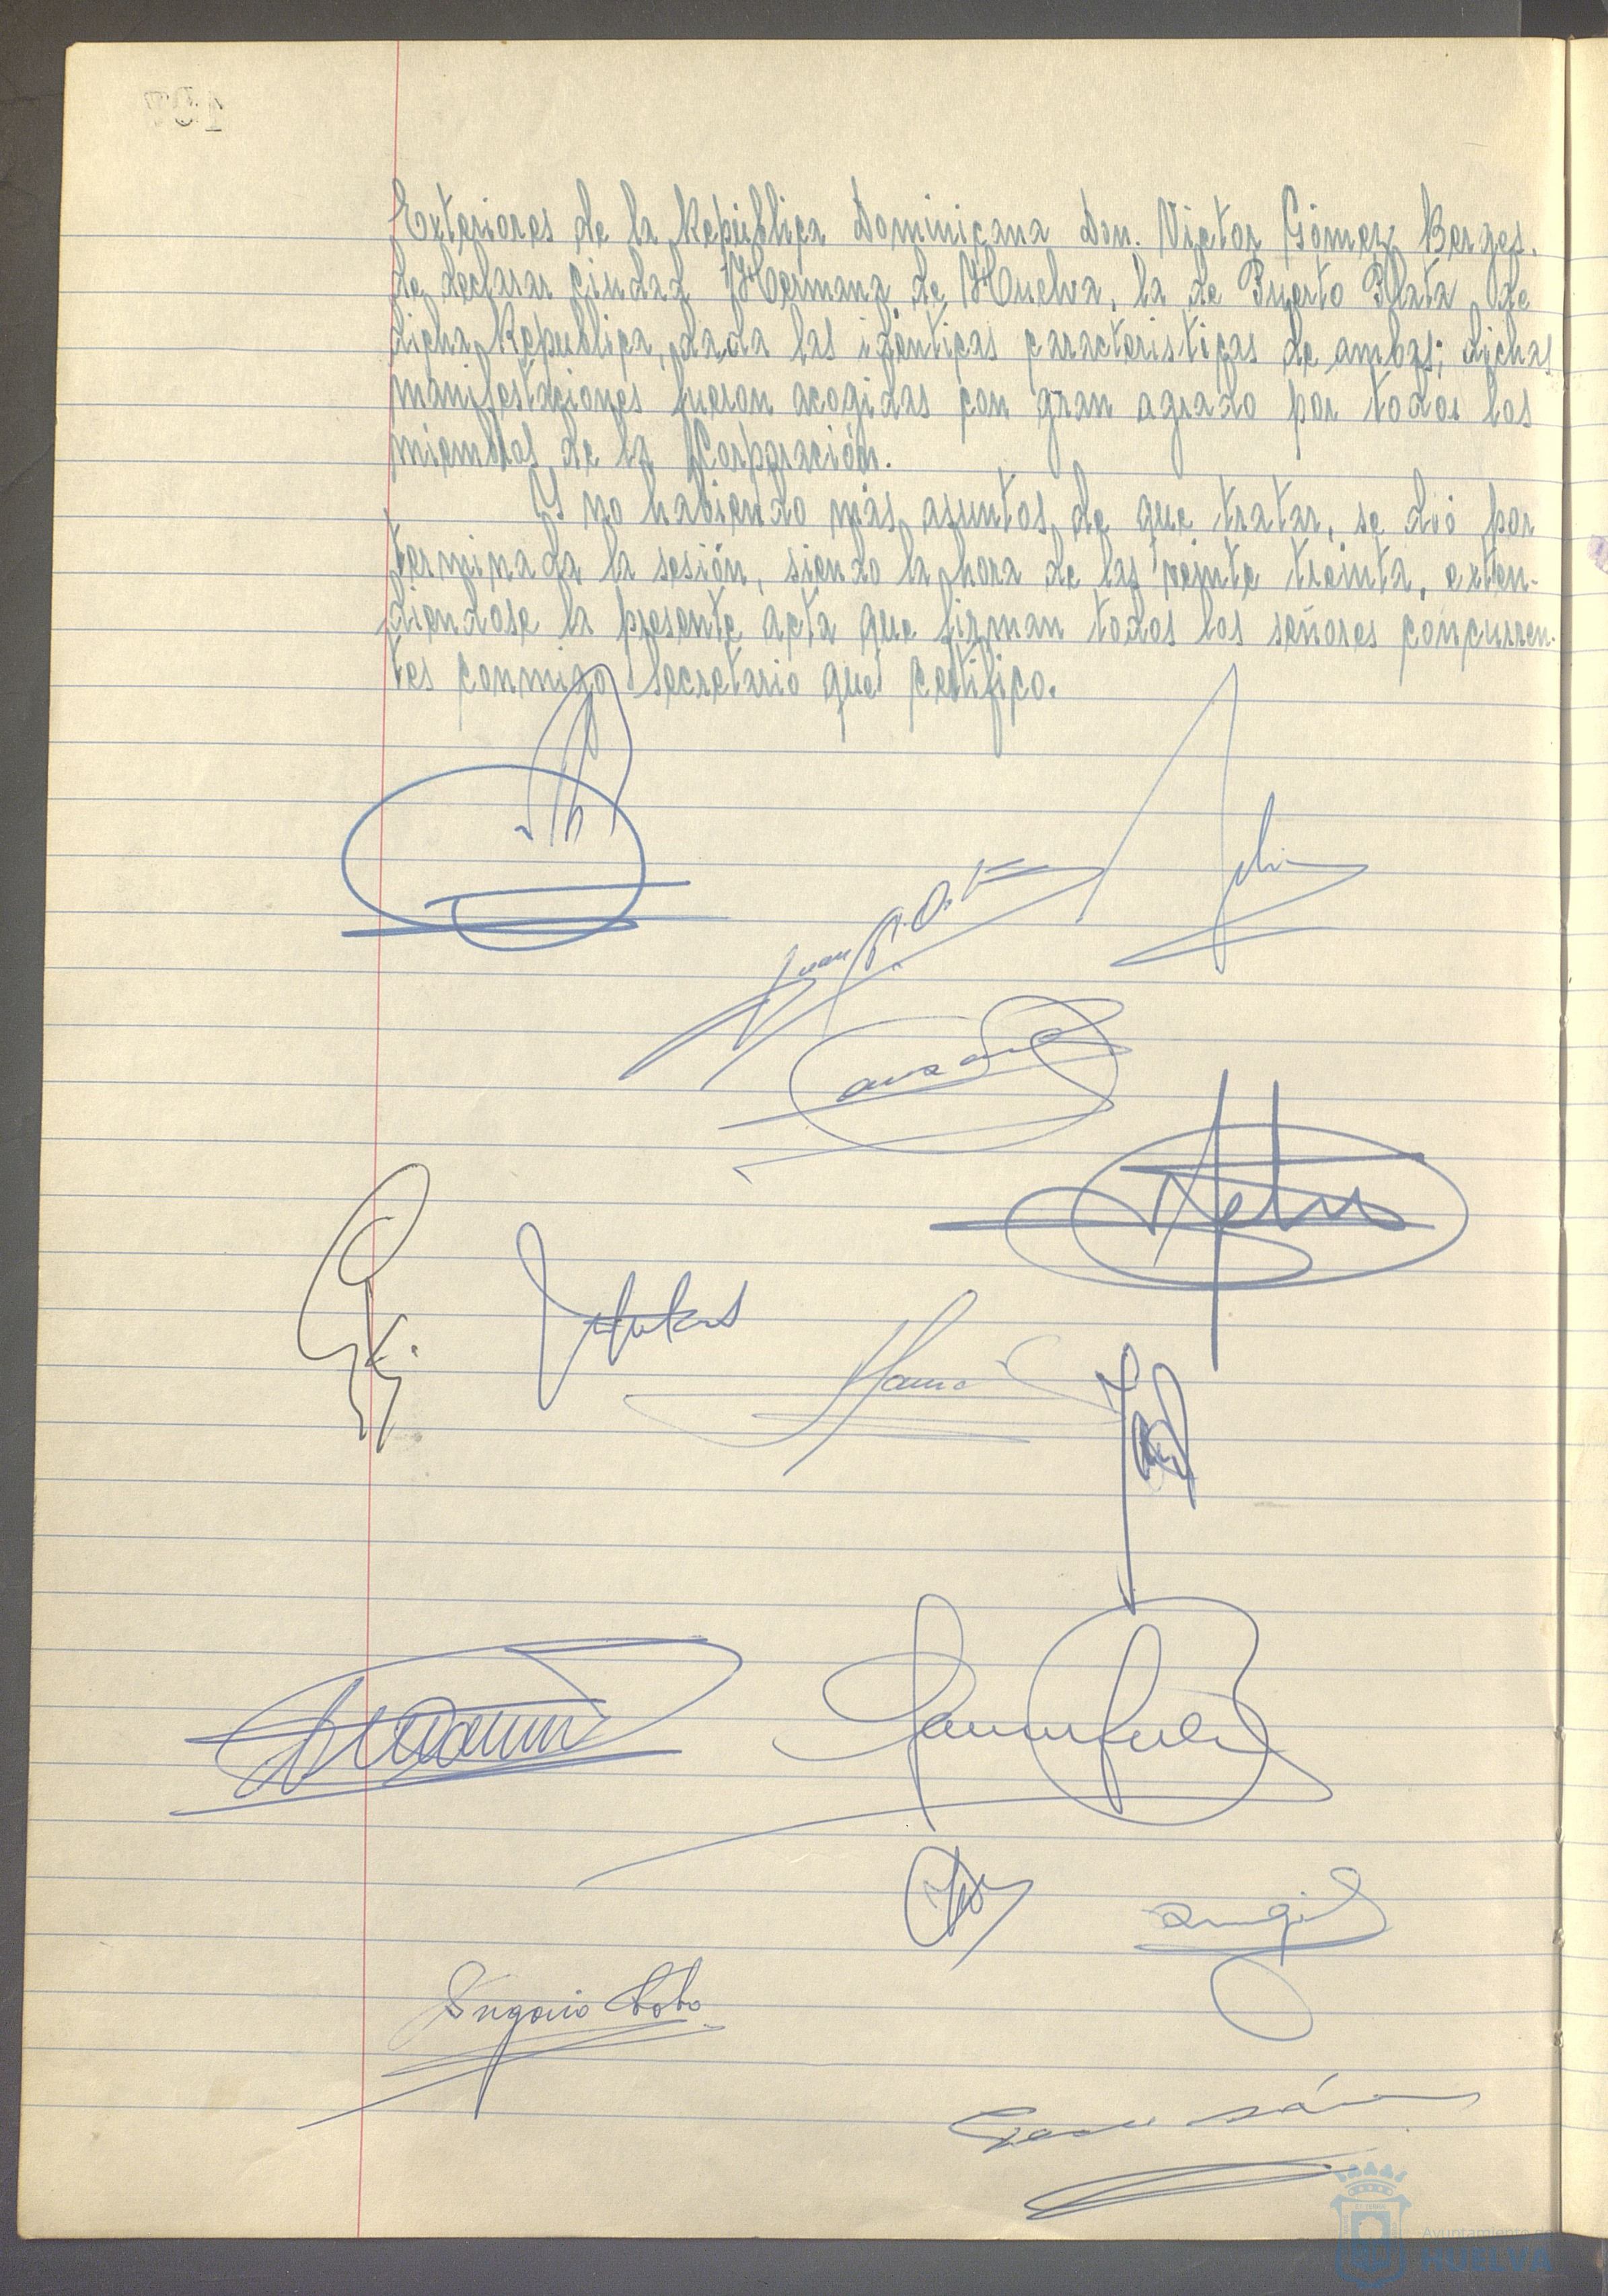 Exteriores de la República Dominicana Don. Victor Gómez Berges.
de declarar ciudad Hermana de Huelva, la de Puerto Plata de
dicha Republica, dada las identicas caracteristicas de ambas; dichas
manifestaciones fueron acogidas con gran agrado por todos los
miembros de la Corporación.
Y no habiendo más asuntos de que tratar, se dió por
terminada la sesión, siendo la hora de las veinte treinta, exten-
diendose la presente acta que firman todos los señores concurren-
tes conmigo Secretario que certifico.
Ayuntamiento de
HUELVA